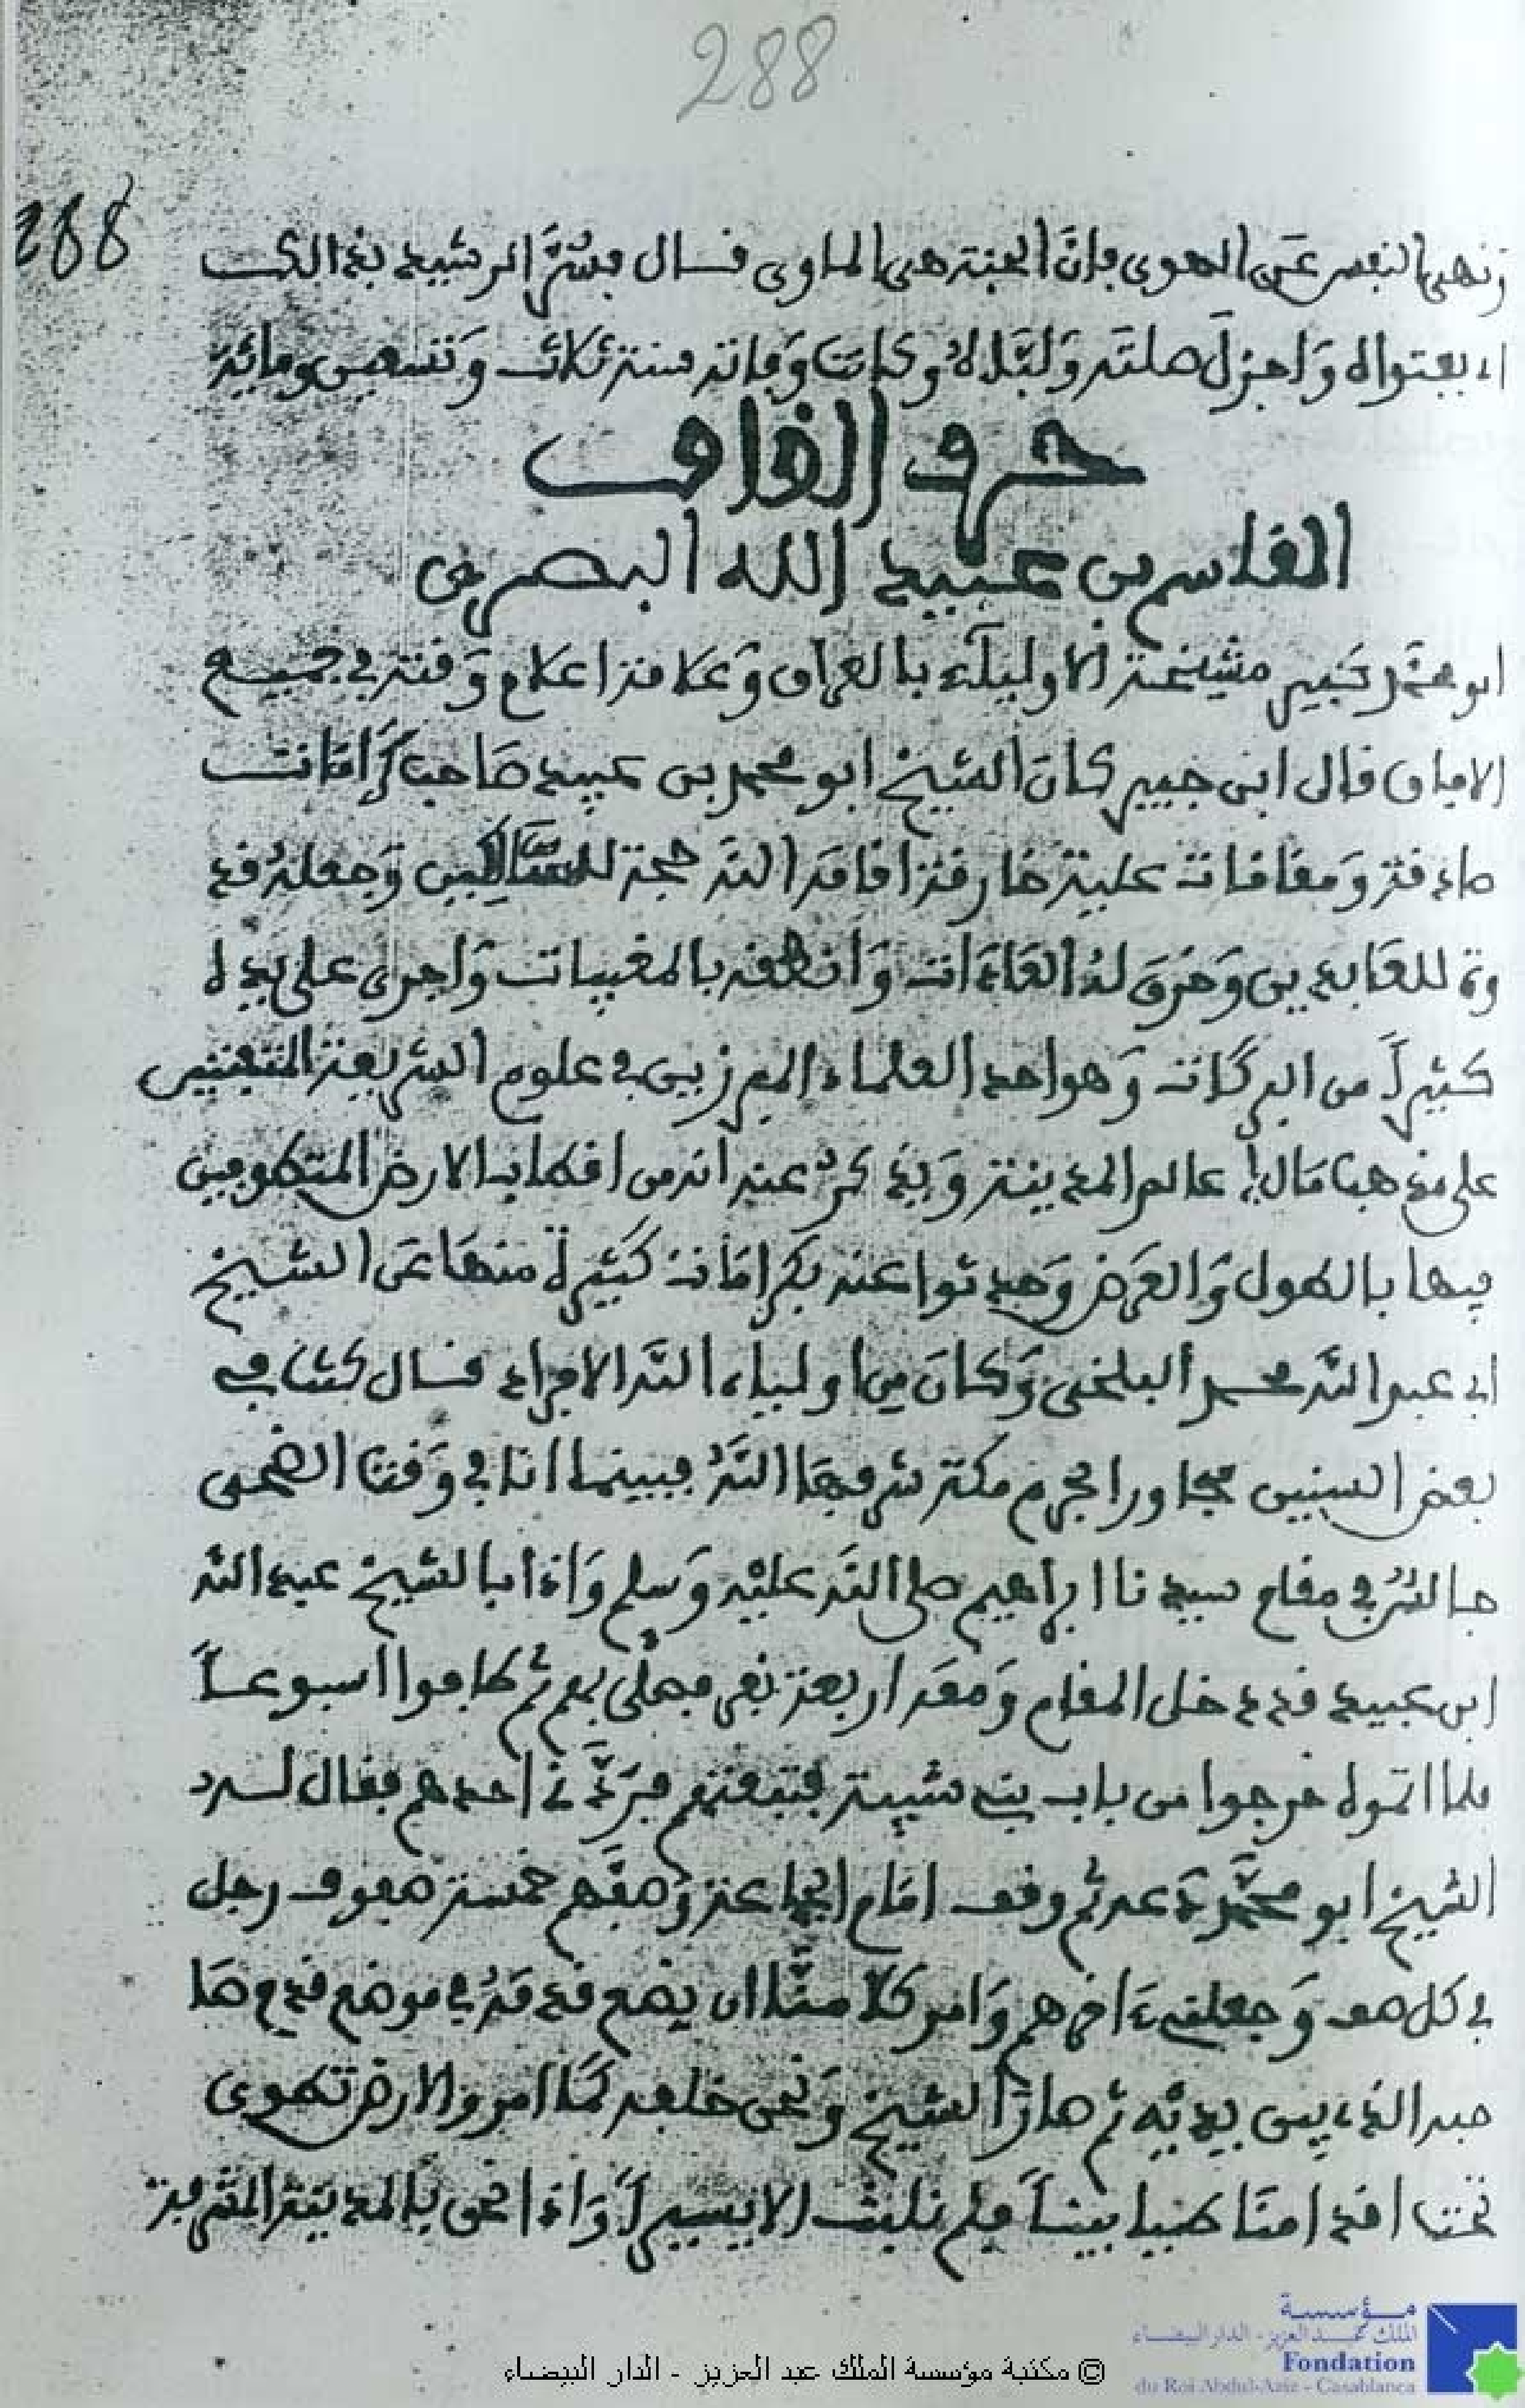 288
288
ونهى النفس عن الهوى فإن الجنة هي الماوى قال فسر الرشيد بذالك
بفتواه واجزل صلته وكانت وفاته سنة ثلاث وتسعين ومائة
حرف القاف
القاسم بن عبيد الله البصري
ابو محمد كبير مشيخة الاولياء بالعراق وعلامة اعلام وقته في جميع
الافاق قال ابن خبير كان الشيخ ابو محمد بن عبيد صاحب كرامات
صادقة ومقامات علية خارقة اقامه الله حجة للسالكين وجعله قد
وة للعابدين وخرق له العادات وانطقه بالمغيبات واجرى على يده
كثيرا من البركات وهو احد العلماء المبرزين في علوم الشريعة المتفننين
على مذهب مالك عالم المدينة ويذكر عنه انه من اقطاب الارض المتطوفين
فيها بالطول والعرض وحدثوا عنه بكرامات كثيرة منها عن الشيخ
ابي عبد الله محمد البلخي وكان من اولياء الله الافراد قال كنت في
بعض السنين مجاورا بحرم مكة شرفها الله فبينما انا في وقت الضحى
جالس في مقام سيدنا ابراهيم صلى الله عليه وسلم واذا بالشيخ عبد الله
ابن عبيد قد دخل المقام ومعه اربعة نفر فصلى بهم ثم طافوا اسبوعا
فلما اتموه خرجوا من باب بني شيبة فتبعتهم فردني احدهم فقال له
الشيخ ابو محمد دعه ثم وقف امام الجماعة وصفهم خمسة صفوف رجل
في كل صف وجعلني ءاخرهم وامر كلا منا ان يضع قدمه في موضع قدم صا
حبه الذي بين يديه ثم سار الشيخ ونحن خلفه كما امر والارض تطوى
تحت اقدامنا طيا بينا فلم نلبث الا يسيرا واذا نحن بالمدينة المشرفة
مؤسسة
الملك عبد العزيز - الدار البيضاء
Fondation
du Roi Abdul-Aziz - Casablanca
© مكتبة مؤسسة الملك عبد العزيز - الدار البيضاء